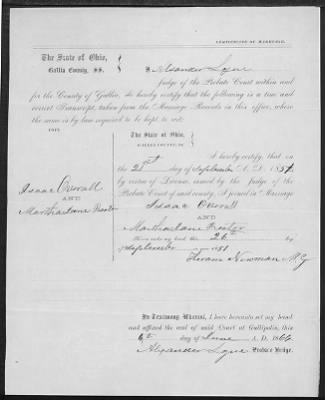 CERTIFICATE OF MARRIAGE.
The State of Ohio,
Gallia County, SS.
I, Alexander Lyne
Judge of the Probate Court within and
for the County of Gallia, do hereby certify that the following is a true and
correct Transcript, taken from the Marriage Records in this office, where
the same is by law required to be kept to wit:
COPY.
The State of Ohio,
GALLIA COUNTY, SS.
I hereby certify, that on
the 21st day of September A. D. 1851
by virtue of License, issued by the Judge of the
Probate Court of said county, I joined in Marriage
Isaac Overall
AND
Marthaelane
Isaac Overall
AND
Marthaelane
Given under my hand this 26th day
September 1851
Newman M.G
In Testimony Whereof, I have hereunto set my hand
and affixed the seal of said Court at Gallipolis, this
6th day of June A. D. 1866
Alexander Lyne Probate Judge.